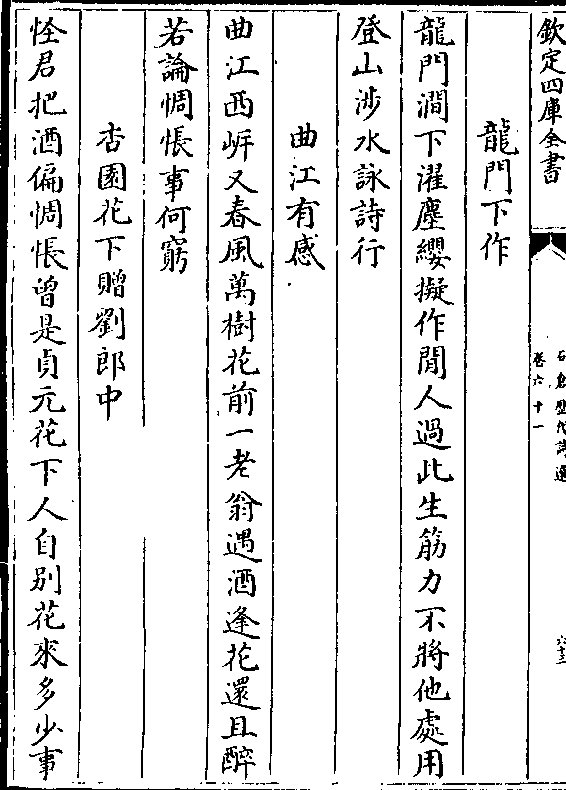 欽定四庫全書
石倉歷代詩選
卷六十一
六十三
龍門下作
龍門澗下濯塵纓擬作閒人過此生筋力不將他處用
登山涉水詠詩行
曲江有感
曲江西岍又春風萬樹花前一老翁遇酒逢花還且醉
若論惆悵事何窮
杏園花下贈劉郎中
怪君把酒偏惆悵曾是貞元花下人自别花來多少事